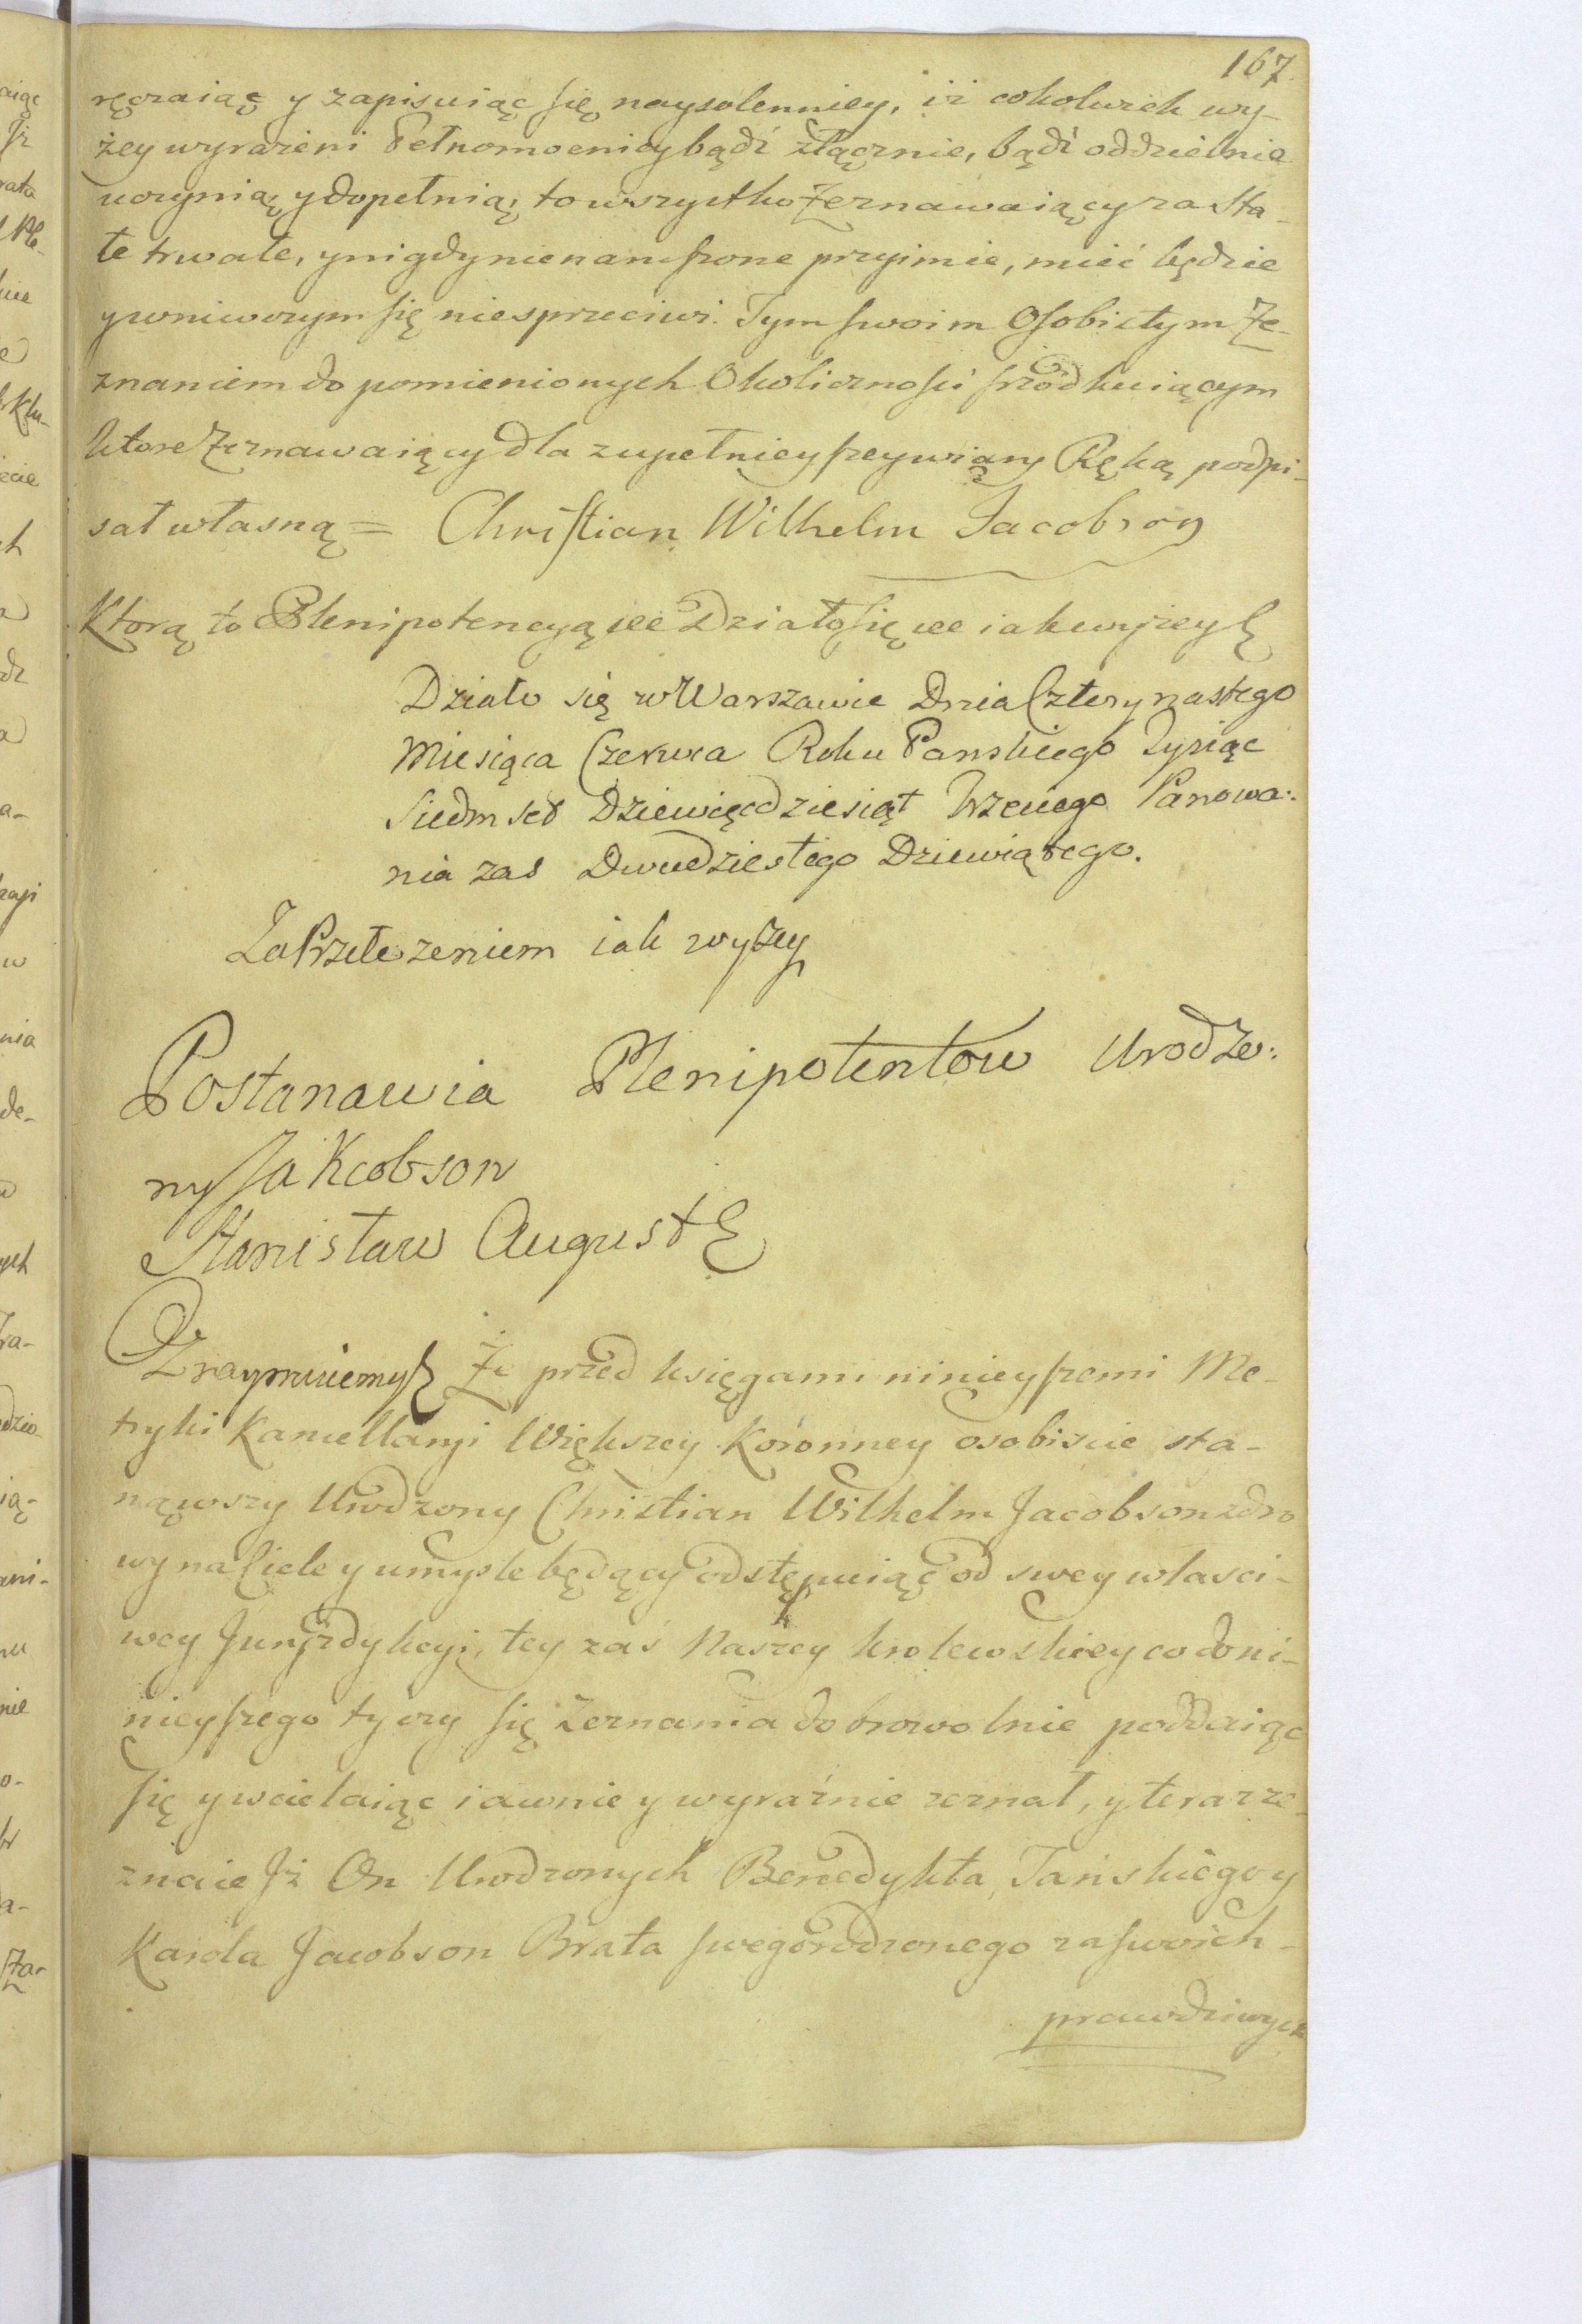 167.
ręczaiąc y zapisuiąc się naysolenniey, iż cokolwiek wy-
żey wyrażeni Pełnomocnicy bądź złącznie, bądź oddzielnie
uczynią y dopełnią, to wszystko Zeznawaiący za sta-
łe trwałe, y nigdy nienaruszone przyimie, mieć będzie
y w niwczym się niesprzeciwi. Tym swoim Osobistym Ze-
znaniem do pomienionych Okoliczności śrzódkuiącym
ktore Zeznawaiący dla zupełnieyszey wiary Ręką podpi-
sał własną = Christian Wilhelm Jacobson
Ktorą to Plenipotencyą etc Działo się etc iak wyżey
Działo się w Warszawie Dnia Czternastego
Miesiąca Czerwca Roku Panskiego Tysiąc
Siedmset Dziewięćdziesiąt Trzeciego Panowa:
nia zas Dwudziestego Dziewiątego.
Za Przełożeniem iak wyżey
Postanawia Plenipotentow Urodzo:
ny Jakcobson
Stanisław August
Oznaymuiemy Że przed księgami ninieyszemi Me-
tryki Kancellaryi Większey Koronney osobiscie sta-
nąwszy Urodzony Christian Wilhelm Jacobson zdro
wy na Ciele y umysle będący odstępuiąc od swey własci-
wey Juryzdykcyi, tey zaś Naszey krolewskiey co do ni-
nieyszego tyczy się Zeznania dobrowolnie poddaiąc
się y wcielaiąc iawnie y wyraźnie zeznał, y teraz ze-
znaie Jż On Urodzonych Benedykta Tańskiego y
Karola Jacobson Brata swego rodzonego za swoich-
prawdziwych